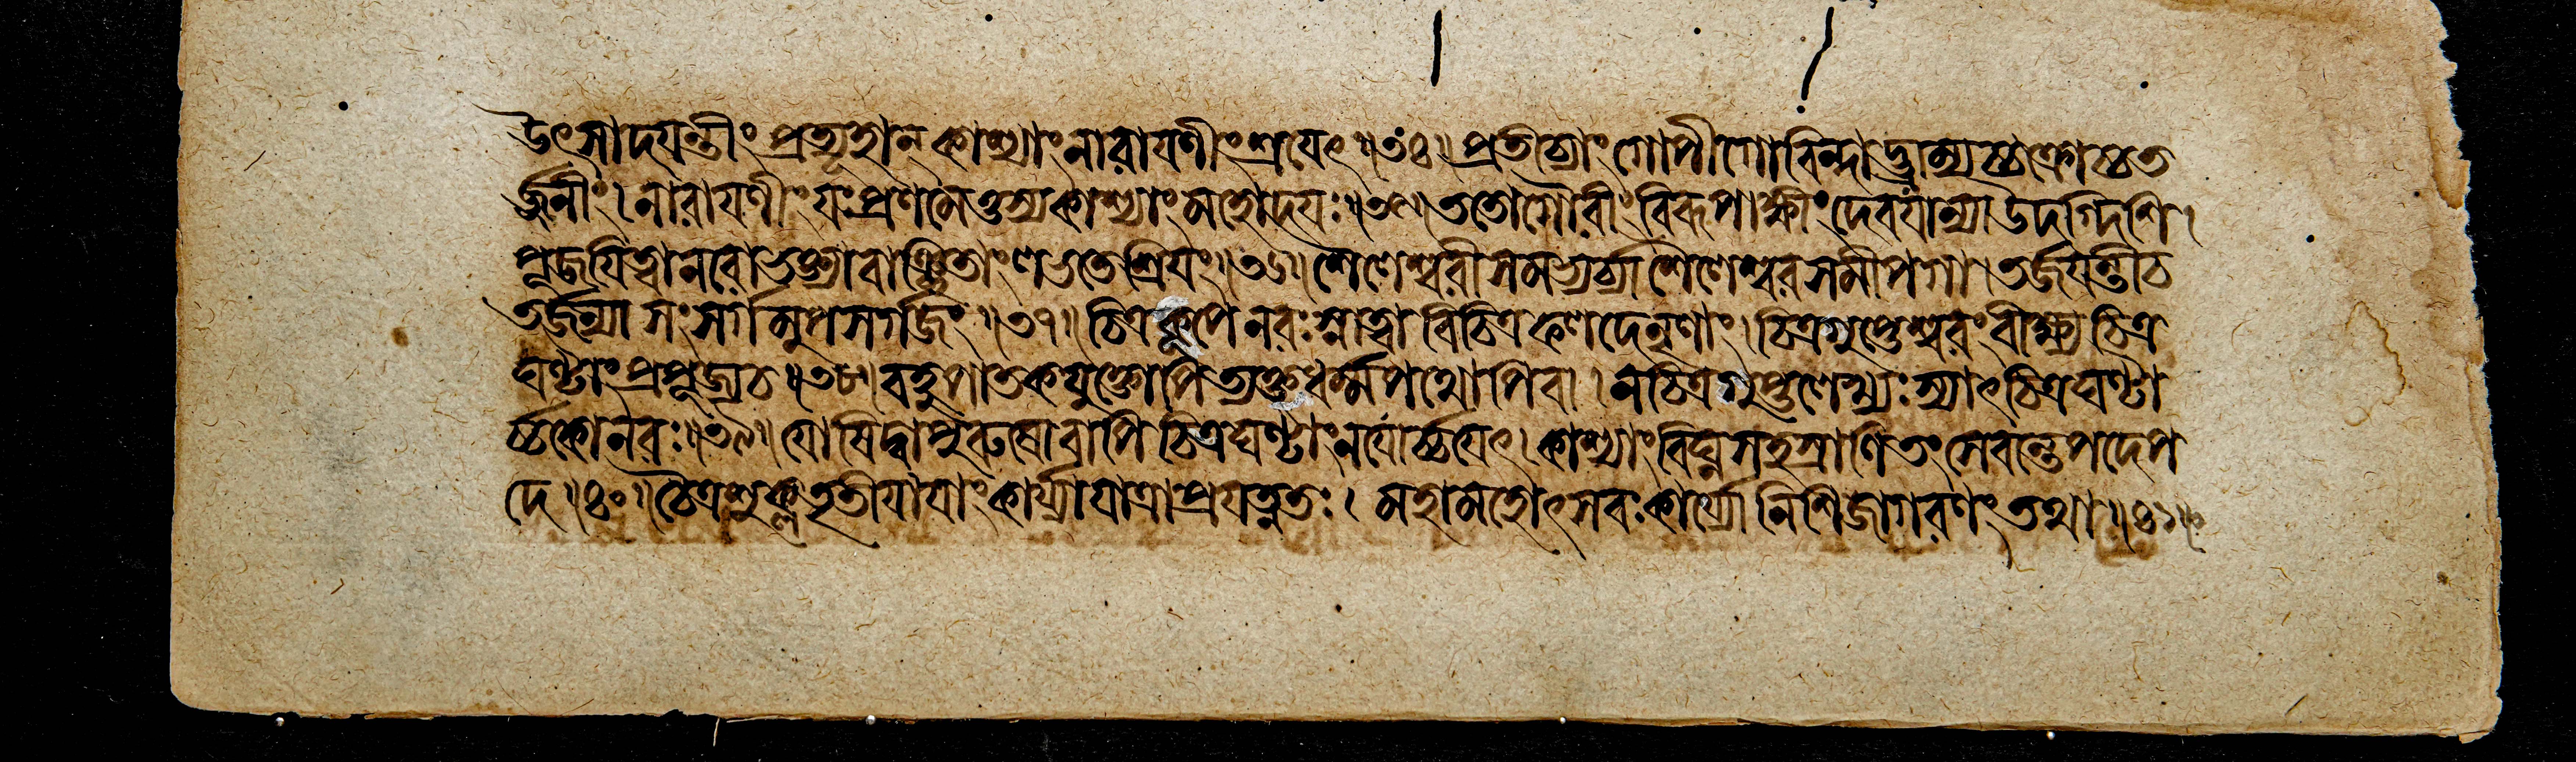 উৎসাদযন্তীং প্রত্যূহান কাশ্যাং নারাযণীং শ্রযেৎ ॥৩৪॥ প্রতীচ্যাং গোপীগোবিন্দাদ্ভ্রাম্যচ্চক্রোচ্চত
র্জনীং । নারাযণীং যঃ প্রণমেত্তস্য কাশ্যাং মহোদযঃ ॥৩৫॥ ততো গৌরীং বিরূপাক্ষীং দেবযান্যা উদগ্দিশি ।
পূজযিত্বা নরো ভক্ত্যা বাঞ্ছিতাং লভতে শ্রিযং ॥৩৬॥ শৈলেশ্বরী সমভ্যর্চ্যা শৈলেশ্বরসমীপগা । তর্জযন্তী চ
তর্জন্যা সংসর্গমুপসর্গজং ॥৩৭॥ চিত্রকূপে নরঃ স্নাত্বা বিচিত্রফলদে নৃণাং । চিত্রগুপ্তেশ্বরং বীক্ষ্য চিত্র
ঘণ্টাং প্রপূজ্য চ ॥৩৮॥ বহুপাতকযুক্তোপি ত্যক্তধর্ম্মপথোপি বা । ন চিত্রগুপ্তলেখ্যঃ স্যাৎ চিত্রঘণ্টা
র্চ্চকো নরঃ ॥৩৯॥ যোষিদ্বা পুরুষো বাপি চিত্রঘণ্টাং ন যোর্চ্চযেৎ । কাশ্যাং বিঘ্নসহস্রাণি তং সেবন্তে পদে প
দে ॥৪০॥ চৈত্রশুক্লতৃতীযাযাং কার্য্যা যাত্রা প্রযত্নতঃ । মহামহোৎসবঃ কার্য্যো নিশি জাগরণং তথা ॥৪১॥